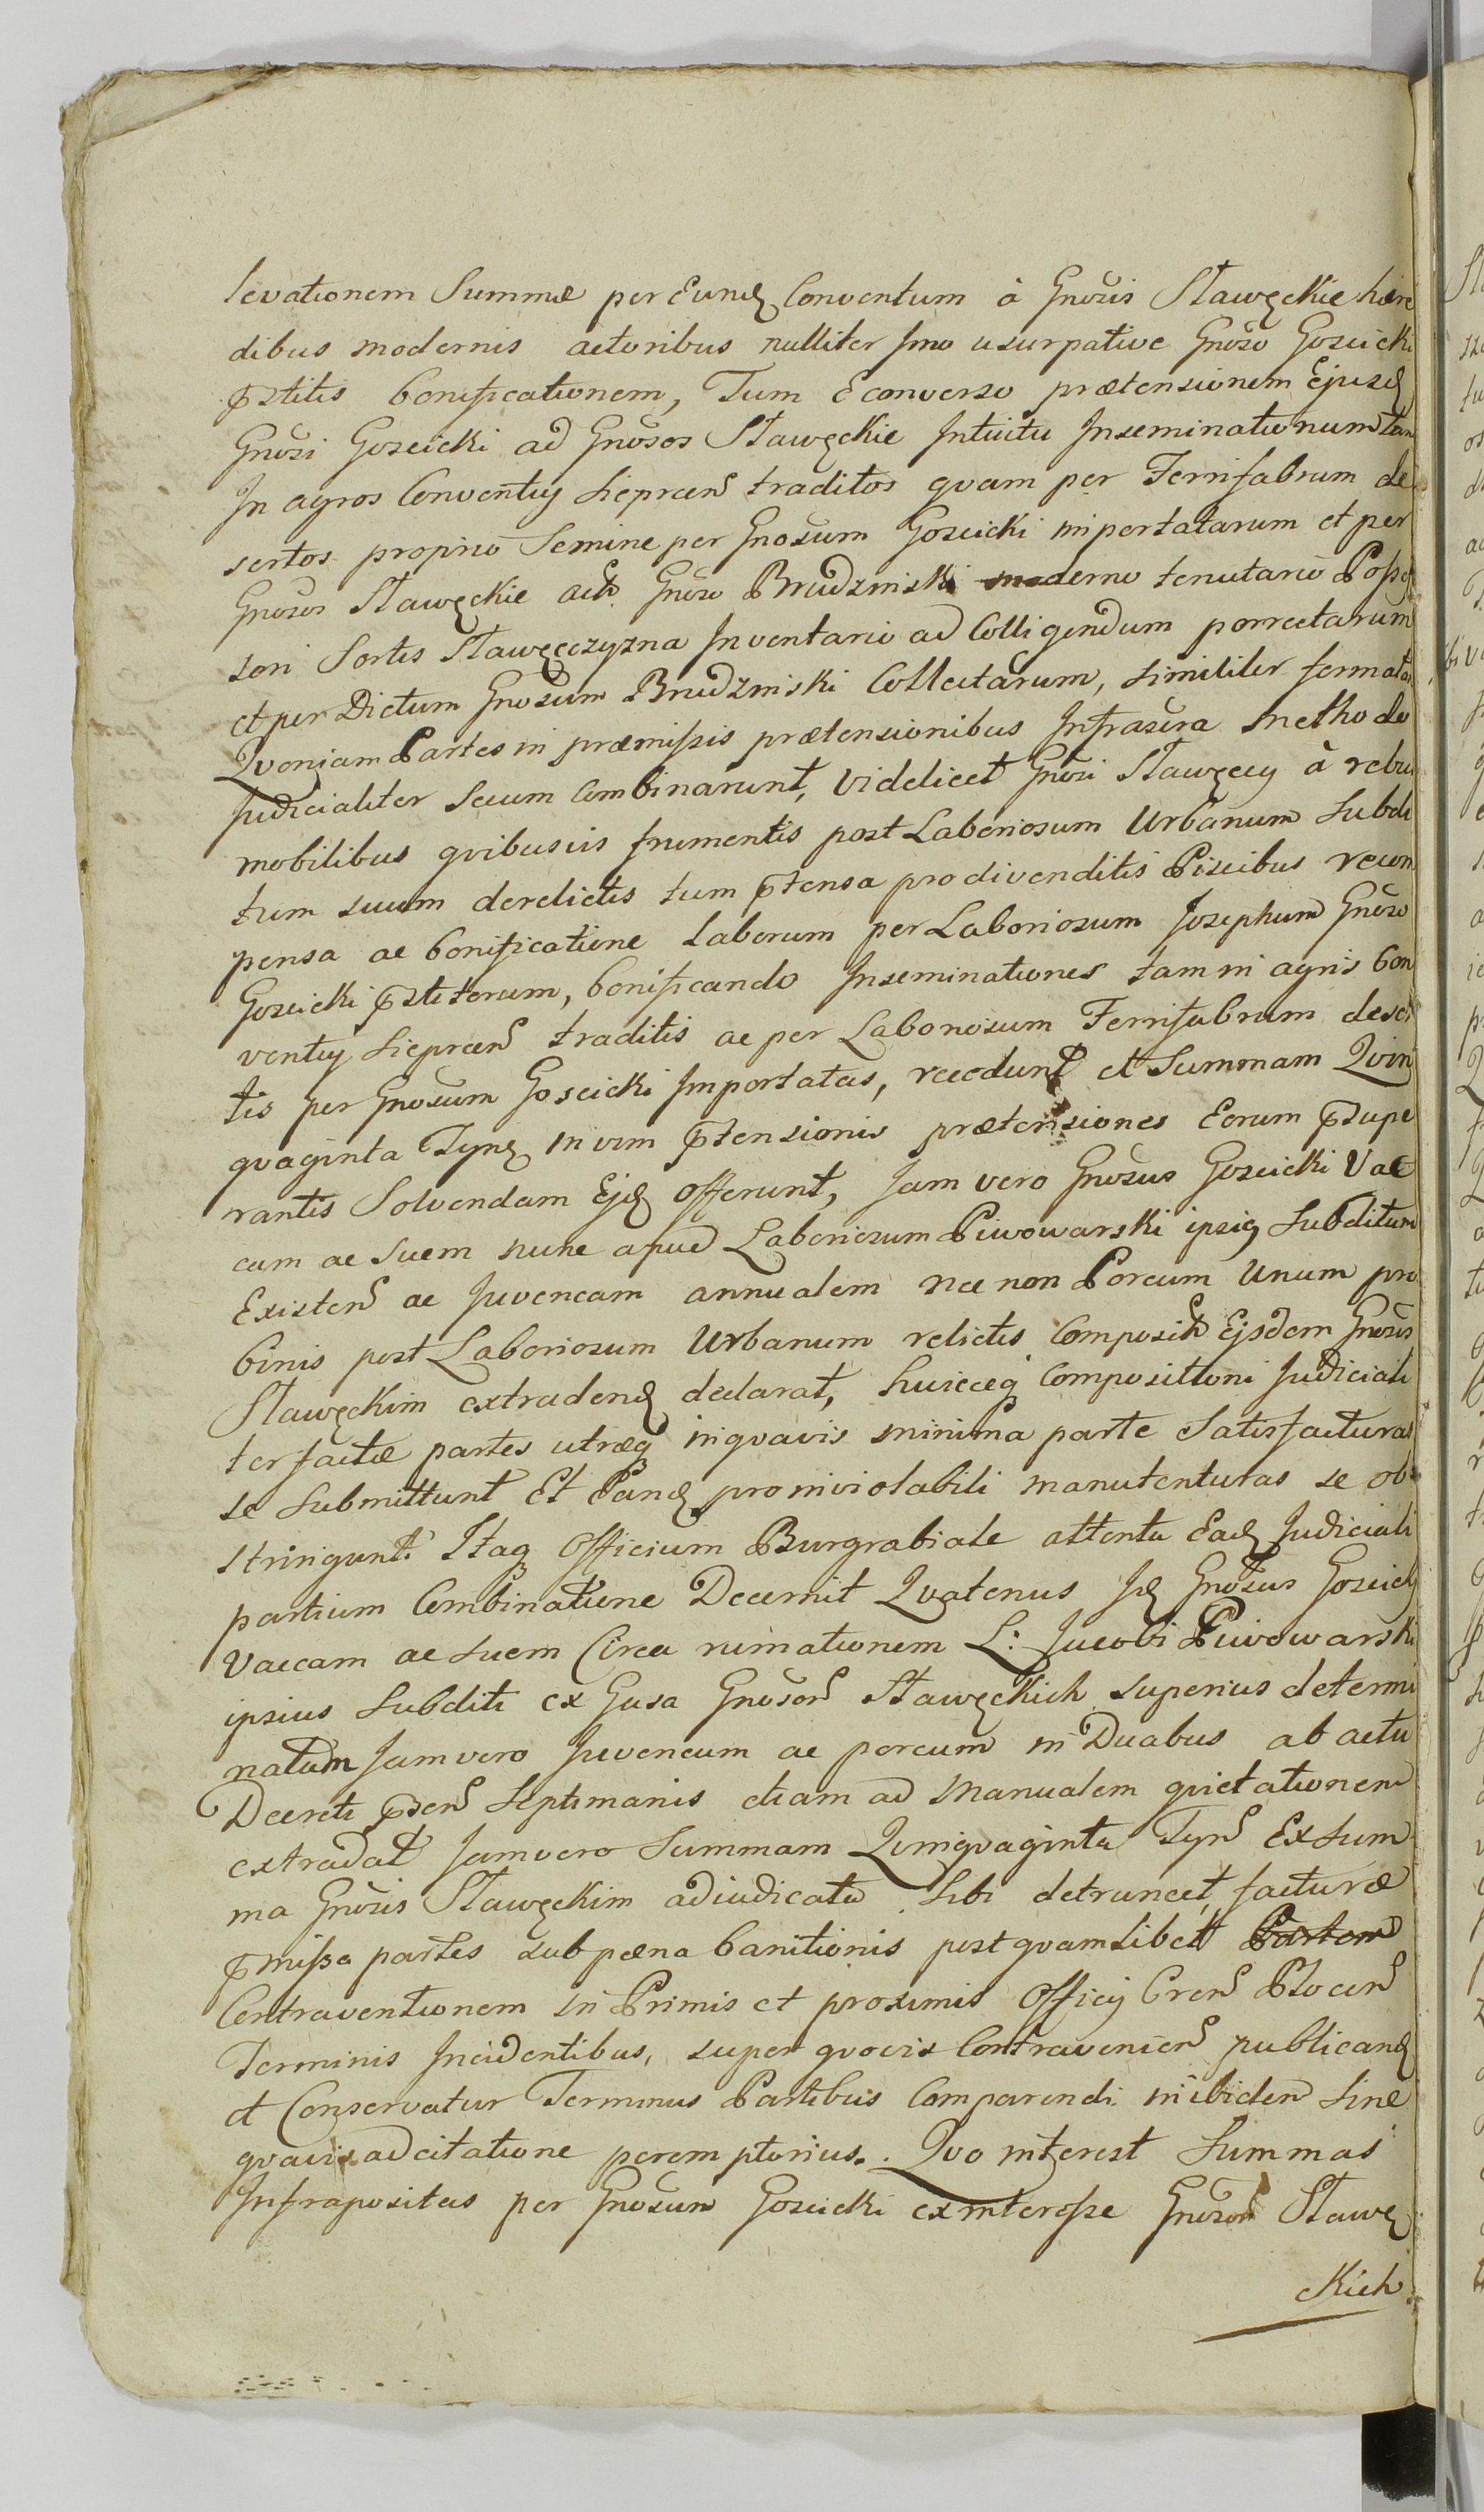 levationem Summæ per Eund Conventum à Gnosis Sławęckie hære
dibus modernis actoribus nulliter Imo usurpative Gnoso Goscicki
pstitis bonificationem, Tum Econverso prætensionem Ejusd
Gnosi Goscicki ad Gnosos Sławęckie Intuitu Inseminationum tam
In agros Conventus Sieprcen traditos qvam per Ferrifabrum de
sertos proprio Semine per Gnosum Goscicki importatarum et per
Gnosos Sławęckie act Gnoso Brudzinski moderno tenutario Posses
sori Sortis Sławęcczyzna Inventario ad Colligendum porrectarum
et per Dictum Gnosum Brudzinski Collectarum, similiter format
Qvoniam Partes in præmissis prætensionibus Infrascra methodo
Judicialiter Secum Combinarunt, videlicet Gnosi Sławęccy à rebu
mobilibus qvibusvis frumentis post Laboriosum Urbanum Subdi
tum suum derelictis tum ptensa pro divenditis Piscibus recom
pensa ac bonificatione Laborum per Laboriosum Josephum Gnoso
Goscicki pstitorum, bonificando Inseminationes tam in agris Con
ventus Sieprcen traditis ac per Laboriosum Ferrifabrum deser
tis per Gnosum Goscicki Importatas, recedunt et Summam Qvin
qvaginta Tynf in vim ptensionis prætensiones Eorum psupe
rantis Solvendam Ejd offerunt, Jam vero Gnosus Goscicki Vac
cam ac Suem nunc apud Laboriosum Piwowarski ipsius Subditum
Existen ac Juvencam annualem nec non Porcum Unum pro
binis post Laboriosum Urbanum relictis Composit Ejsdem Gnosis
Sławęckim extradend declarat, huicceq Compositioni Judiciali
ter factæ partes utræq in qvavis minima parte Satisfacturas
se Submittunt Et Eand pro inviolabili manutenturas se ob
stringunt. Itaq Officium Burgrabiale attenta Ead Judiciali
partium Combinatione Decernit Qvatenus Id Gnosus Goscicki
Vaccam ac Suem Circa rumationem L: Jacobi Piwowarski
ipsius Subditi ex Gusa Gnoson Sławęckich superius determi
natam Jam vero Juvencam ac porcum in Duabus ab actu
Decreti psen Septimanis etiam ad Manualem qvietationem
extradat Jam vero Summam Qvinqvaginta Tyn Ex Sum
ma Gnosis Sławęckim adiudicata Sibi detruncet, facturæ
pmissa partes sub pæna banitionis post qvamlibet Partem
Contraventionem in Primis et proximis Officij Cren Plocen
Terminis Incidentibus, super qvovis Contravenien publicand
et Conservatur Terminus Partibus Comparendi inibidem Sine
qvavis adcitatione peremptorius. Qvo interest Summas
Infrapositas per Gnosum Goscicki ex interesse Gnoson Sławę
ckich